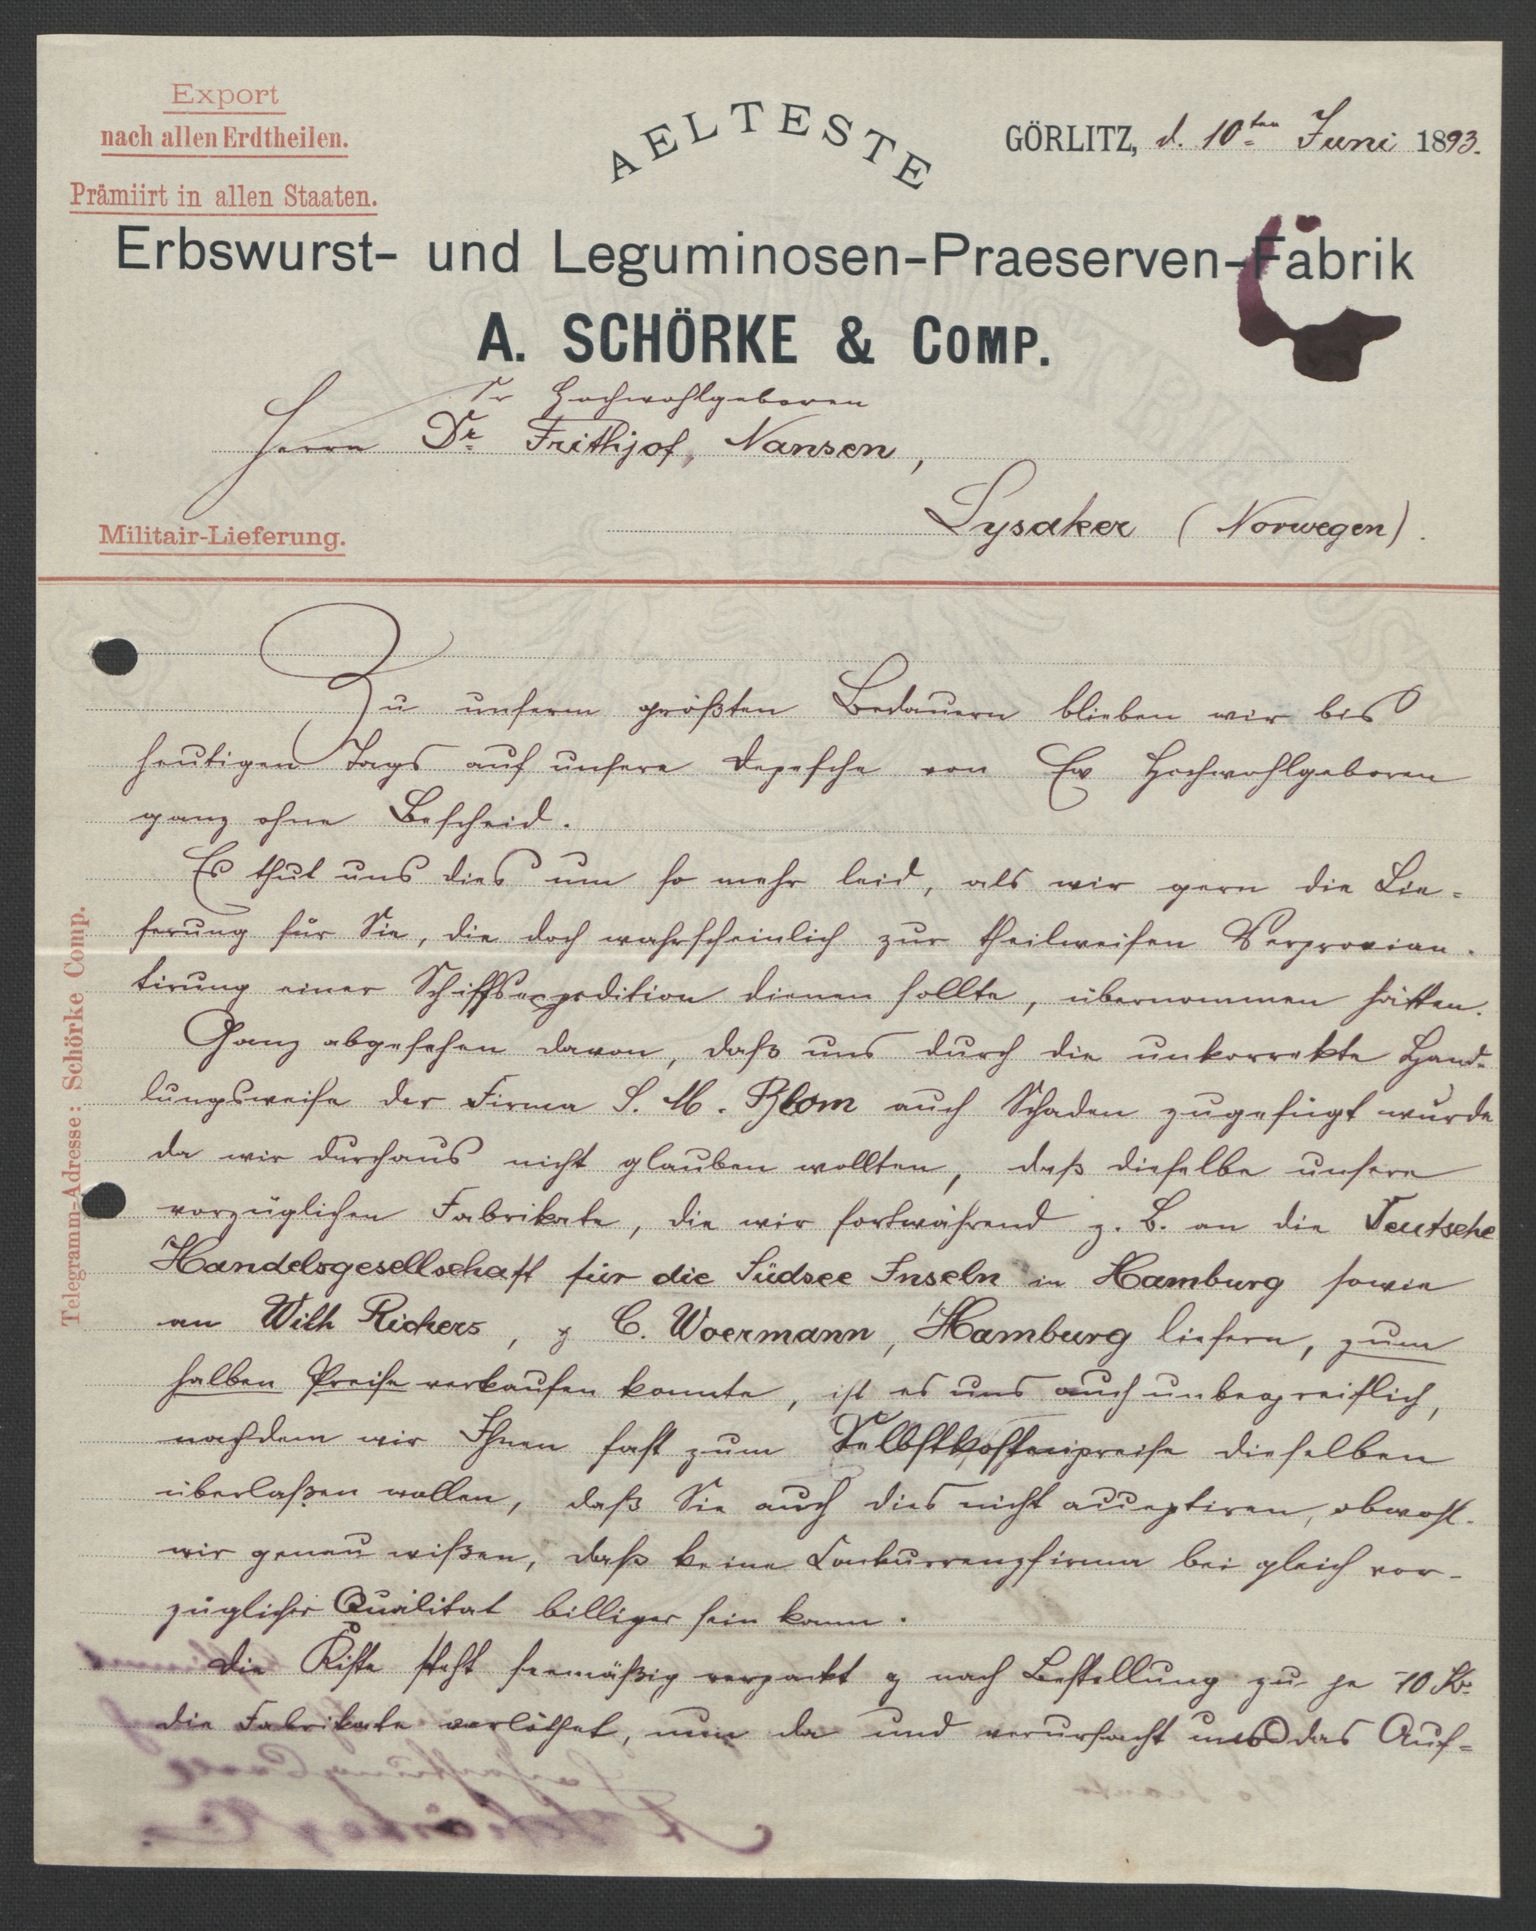 Export
nach allen Erdtheilen.
Prämiirt in allen Staaten.
AELTESTE
GÖRLITZ, d. 10ten Juni 1893.
Erbswurst- und Leguminosen-Praeserven-Fabrik
A. SCHÖRKE & COMP.
Sr Hochwohlgeboren
Herrn Dr. Frithjof, Nansen,
Lysaker (Norwegen).
Militair-Lieferung.
Zu unserm größten Bedauern blieben wir bis
heutigen Tags auf unsere Depesche von Ew Hochwohlgeboren
ganz ohne Bescheid.
Es thut uns dies um so mehr leid, als wir gern die Lie-
ferung für Sie, die doch wahrscheinlich zur theilweisen Verprovian-
tirung einer Schiffsexpedition dienen sollte, übernommen hätten.
Ganz abgesehen davon, daß uns durch die unkorrekte Hand-
lungsweise der Firma S. M. Blom auch Schaden zugefügt wurde
da wir durchaus nicht glauben wollten, daß dieselbe unsere
vorzüglichen Fabrikate, die wir fortwährend z. B. an die Deutsche
Handelsgesellschaft für die Südsee Inseln in Hamburg sowie
an Wilh Richers, & C. Woermann, Hamburg liefern, zum
halben Preise verkaufen konnte, ist es uns auch unbegreiflich,
nachdem wir Ihnen fast zum Selbstkostenpreise dieselben
überlaßen wollen, daß Sie auch dies nicht acceptiren, obwohl
wir genau wißen, daß keine Conkurrenzfirma bei gleich vor-
züglicher Qualitat billiger sein kann.
Die Kiste steht seemäßig verpackt & nach Bestellung zu je 10 Ko
die Fabrikate verlöthet, nun da und verursacht uns das Auf-
Telegramm-Adresse: Schörke Comp.